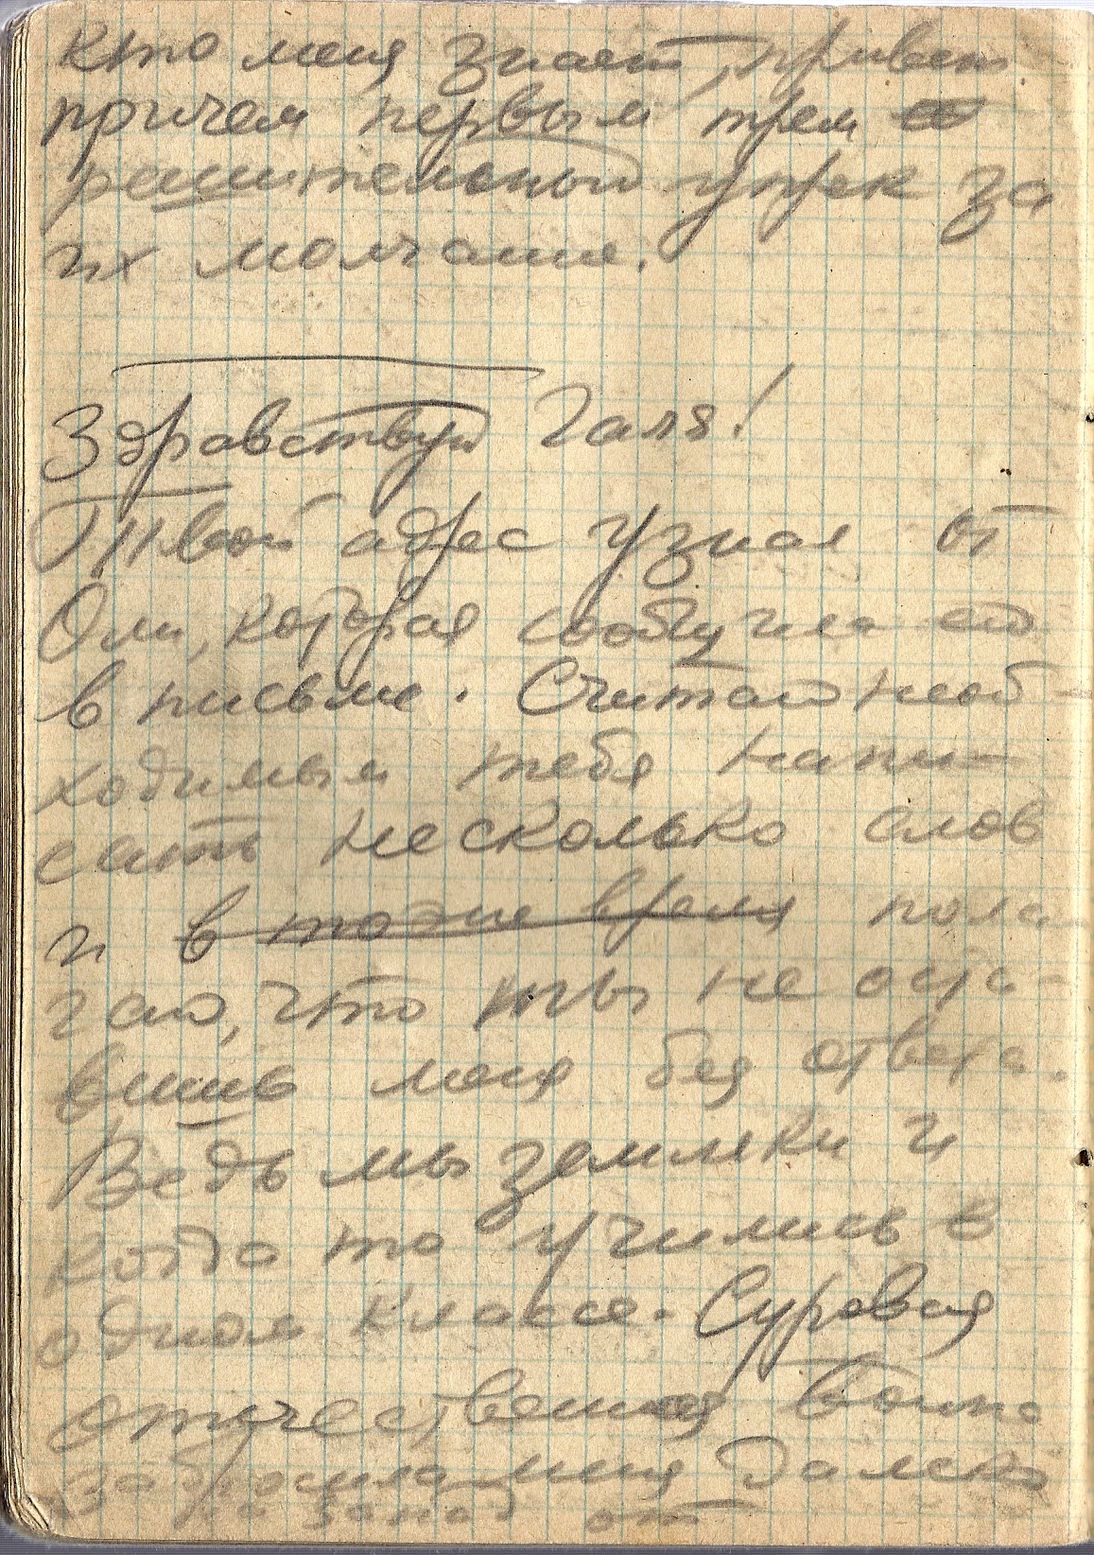 кто меня знает, привет
причем первым трем
решительный упрек за
их молчание.
Здравствуй Галя!
Твой адрес узнал от
Оли, которая сообщила его
в письме. Считаю необ-
ходимым тебя напи-
сать несколько слов
и в тоже время пола
гаю, что ты не оста-
вишь меня без ответа.
Ведь мы земляки и
когда то учились в
одном классе. Суровая
отечественная война
забросила меня далеко
на запад от